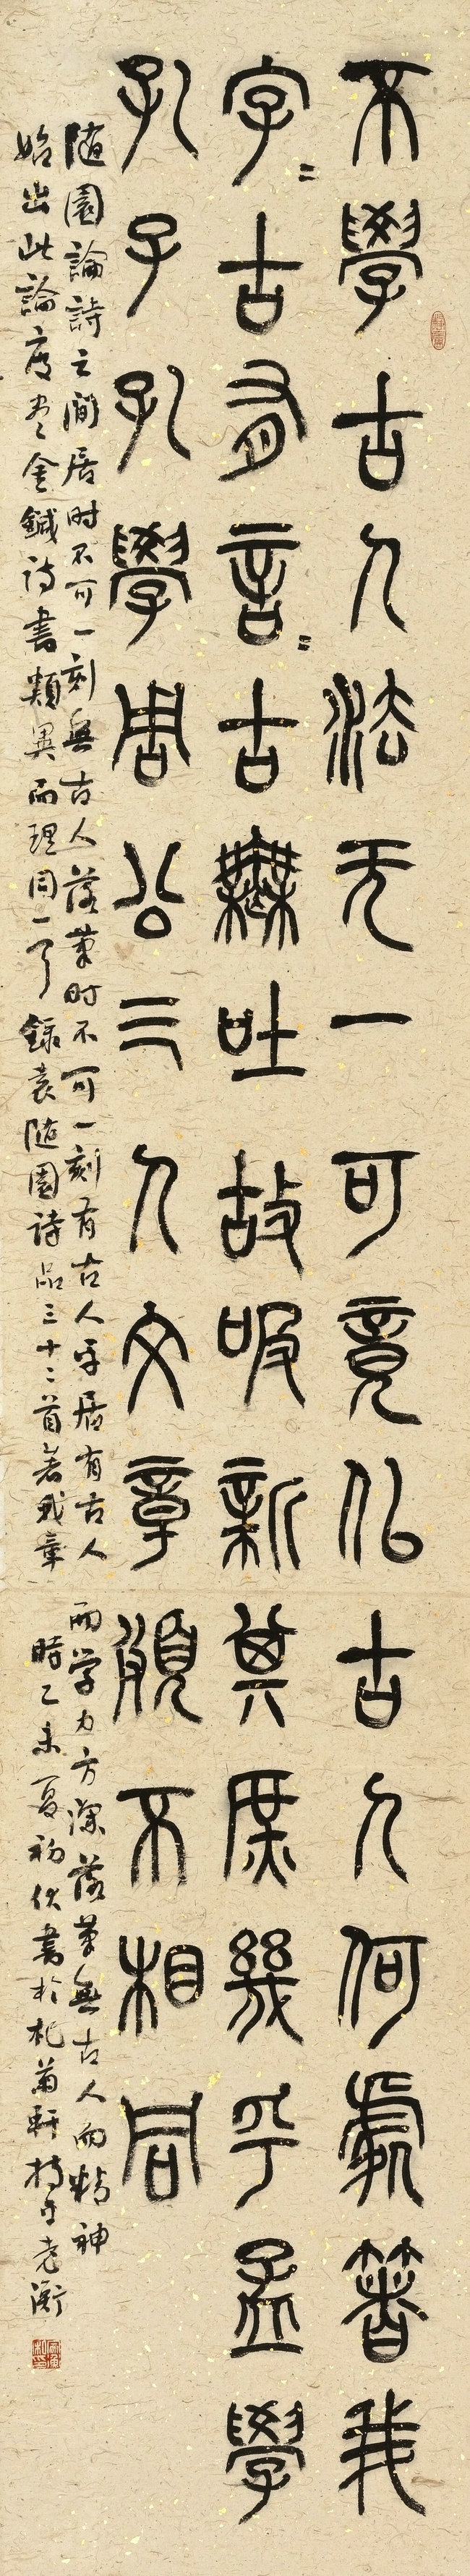 不學古人法无一可竟似古人何處箸我
字〻古有言〻古無吐故吸新其庶幾乎孟學
孔子孔學周公三人文章頗不相同
随園論詩云閒居时不可一刻無古人落筆时不可一刻有古人平居有古人而学力方深落筆無古人而精神
始出此論度尽金鍼詩書類異而理同一耳錄袁随園詩品三十二首著我章時乙未夏初伏書於杞菊軒老衡